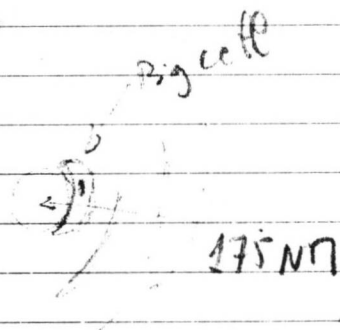 Big cell
175 NM